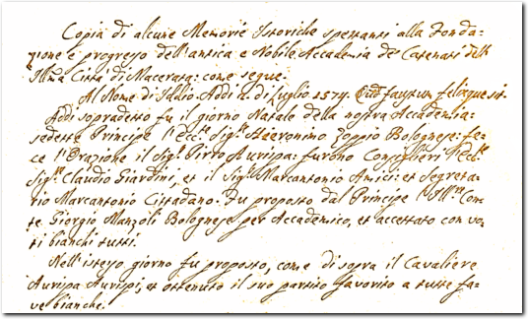 Copia di alcune Memorie Istoriche spettanti alla Fonda-
zione e progresso dell'antica e Nobile Accademia de' Catenati dell'
Illma Città di Macerata: come segue.
Al Nome di Iddio. Addi 2. di luglio 1574. faustum felixque sit.
Addi sopradetto fu il giorno Natale della nostra Accademia:
sedette Principe l'Ecc.te Sig.r Hieronimo Zoppio Bolognese: fe-
ce l'Orazione il Sig.r Pirro Aurispa: furono Consiglieri l'Ecc.te
Sig.r Claudio Giardini, et il Sig.r Marcantonio Amici: et Segreta-
rio Marcantonio Cittadano. Fu proposto dal Principe l'Ill.mo Con-
te Giorgio Manzoli Bolognese per Accademico, et accettato con vo-
ti bianchi tutti.
Nell'istesso giorno fu proposto, come di sopra il Cavaliere
Aurispa Aurispi, et ottenuto il suo partito favorito a tutte fa-
ve bianche.